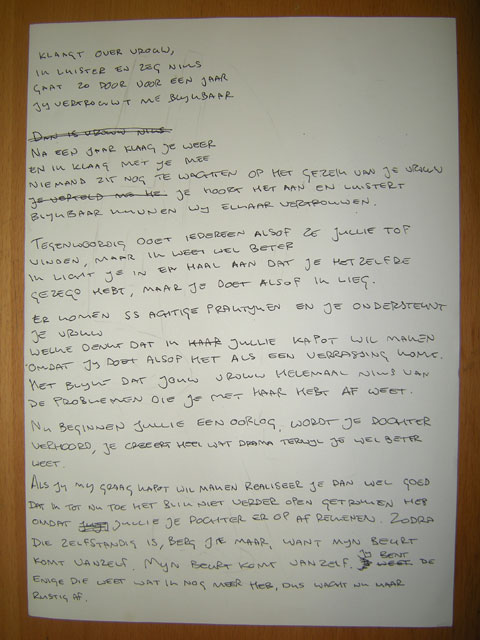 KLAAGT OVER VROUW,
IK LUISTER EN ZEG NIKS
GAAT ZO DOOR VOOR EEN JAAR
JIJ VERTROUWT ME BLIJKBAAR
DAN IS VROUW NIKS
NA EEN JAAR KLAAG JE WEER
EN IK KLAAG MET JE MEE
NIEMAND ZIT NOG TE WACHTEN OP HET GEZEIK VAN JE VROUW
JE VERTELD ME HE. JE HOORT HET AAN EN LUISTERT
BLIJKBAAR KUNNEN WIJ ELKAAR VERTROUWEN.
TEGENWOORDIG DOET IEDEREEN ALSOF ZE JULLIE TOF
VINDEN, MAAR IK WEET WEL BETER
IK LICHT JE IN EN HAAL AAN DAT JE HETZELFDE
GEZEGD HEBT, MAAR JE DOET ALSOF IK LIEG.
ER KOMEN SS ACHTIGE PRAKTIJKEN EN JE ONDERSTEUNT
JE VROUW
WELKE DENKT DAT IK HAAR JULLIE KAPOT WIL MAKEN
OMDAT JIJ DOET ALSOF HET ALS EEN VERRASSING KOMT.
HET BLIJKT DAT JOUW VROUW HELEMAAL NIKS VAN
DE PROBLEMEN DIE JE MET HAAR HEBT AF WEET.
NU BEGINNEN JULLIE EEN OORLOG, WORDT JE DOCHTER
VERHOORD, JE CREEERT HEEL WAT DRAMA TERWIJL JE WEL BETER
WEET.
ALS JIJ MIJ GRAAG KAPOT WIL MAKEN REALISEER JE DAN WEL GOED
DAT IK TOT NU TOE HET BLIK NIET VERDER OPEN GETROKKEN HEB
OMDAT JULLIE JE DOCHTER ER OP AF REKENEN. ZODRA
DIE ZELFSTANDIG IS, BERG JE MAAR, WANT MIJN BEURT
KOMT VANZELF. MIJN BEURT KOMT VANZELF. JIJ BENT
WEET DE
ENIGE DIE WEET WAT IK NOG MEER HEB, DUS WACHT NU MAAR
RUSTIG AF.